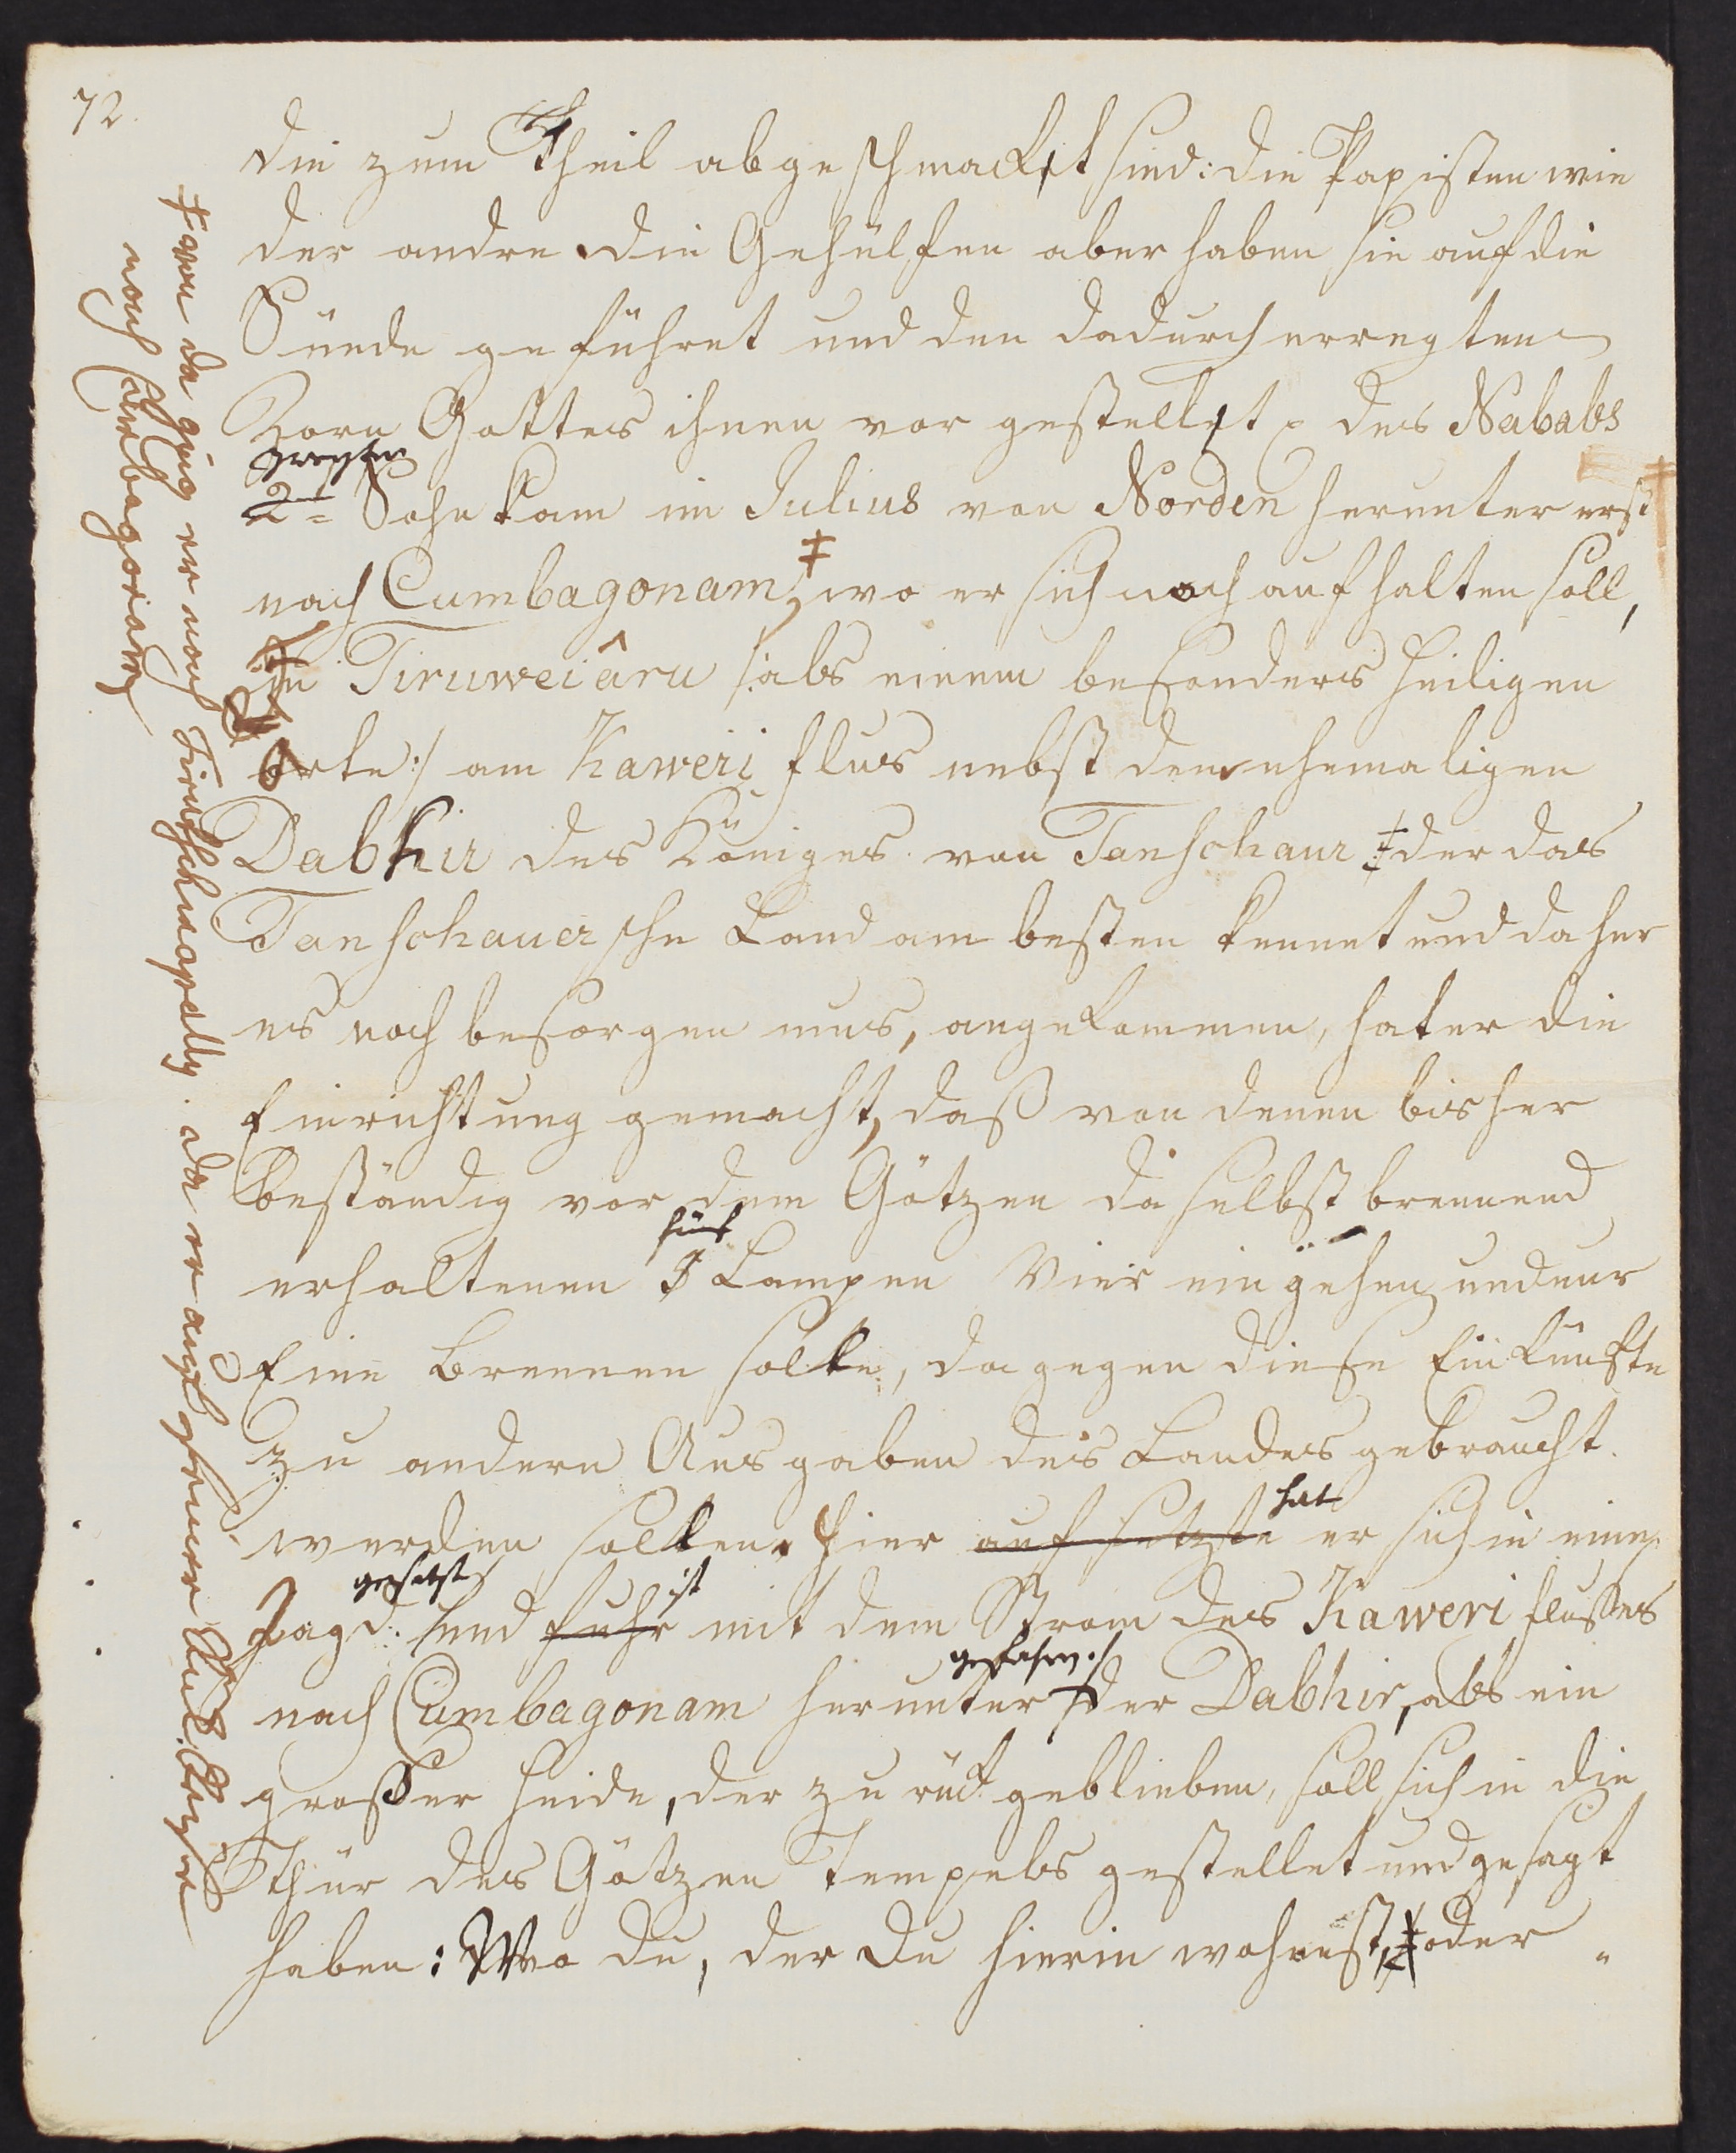 72.
die zum Theil abgeschmackt sind: die Papisten wie
der andre. Die Gehülfen aber haben sie auf die
Sünde geführet und den dadurch erregten
Zorn Gottes ihnen vor gestellet. des Nababs
zweyter
2te Sohn kam im Julius von Norden herunter erst
nach Cumbagonam, ‡ wo er sich noch aufhalten soll,
in Tiruweiâru /: als einem besonders heiligen
Orte :/ am Kaweri flus nebst dem ehemaligen
Dabhir des Königes von Tanschaur ‡ der das
Tanschauersche Land am besten kennet und daher
es noch besorgen mus, angekommen, hat er die
Einrichtung gemacht, daß von denen bisher
beständig vor dem Götzen daselbst brennend
fünf
erhaltenen 5 Lampen Vier eingehen und nur
Eine brennen solte, dagegen diese Einkünfte
zu andern Ausgaben des Landes gebraucht
hat
werden solten. Hier auf setzte er sich in eine
gesetzt ist
Jagd. und fuhr mit dem Strom des Kaweri flußes
gefahren :/
nach Cumbagonam herunter der Dabhir, als ein
großer Heide, der zurück geblieben, soll sich in die
Thür des Götzen Tempels gestellet und gesagt
haben: Wo du, der du hierin wohnest, ‡ oder
‡ von da ging er nach Tirutschinapally. da er
nach Cumbagonam